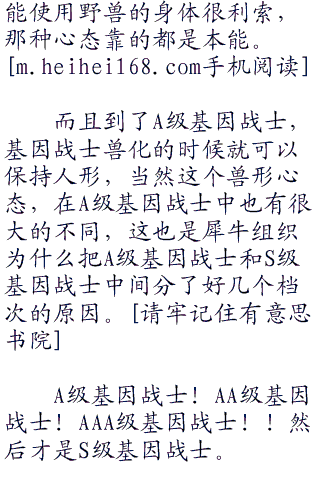 能使用野兽的身体很利索，
那种心态靠的都是本能。
[m.heihei168.com手机阅读]
而且到了A级基因战士，
基因战士兽化的时候就可以
保持人形，当然这个兽形心
态，在A级基因战士中也有很
大的不同，这也是犀牛组织
为什么把A级基因战士和S级
基因战士中间分了好几个档
次的原因。[请牢记住有意思
书院]
A级基因战士！AA级基因
战士！AAA级基因战士！！然
后才是S级基因战士。